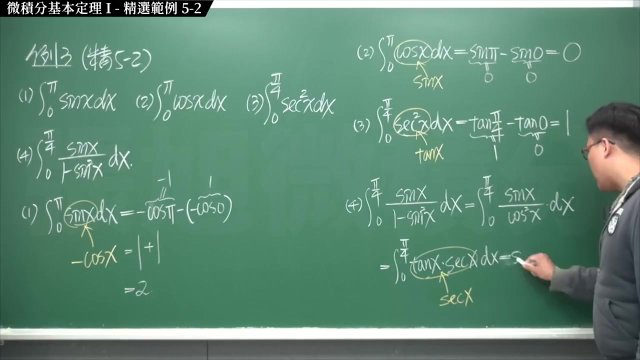 微積分基本定理 I - 精選範例 5-2
例3 (精5-2)
(1) ∫₀^π sinx dx (2) ∫₀^π cosx dx (3) ∫₀^{π/4} sec²x dx
(4) ∫₀^{π/4} sinx/(1-sin²x) dx.
-1 1
(1) ∫₀^π sinx dx = -cosπ - (-cos0)
-cosx = 1+1
= 2
(2) ∫₀^π cosx dx = sinπ - sin0 = 0
sinx 0 0
(3) ∫₀^{π/4} sec²x dx = tan π/4 - tan0 = 1
tanx 1 0
(4) ∫₀^{π/4} sinx/(1-sin²x) dx = ∫₀^{π/4} sinx/cos²x dx
= ∫₀^{π/4} tanx·secx dx = s
secx